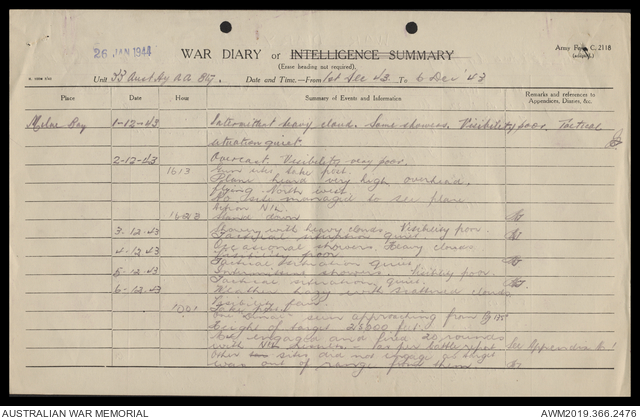 26 JAN 1944
WAR DIARY or INTELLIGENCE SUMMARY
Army Form C. 2118
(adapted.)
(Erase heading not required).
Unit 33 Aust Hy A.A. Bty. Date and Time.—From 1st Dec 43 To 6 Dec '43
Place Date Hour Summary of Events and Information Remarks and references to
Appendices, Diaries, &c.
Milne Bay 1-12-43 Intermittent heavy cloud. Some showers. Visibility poor. Tactical
situation quiet.
2-12-43 Overcast. Visibility very poor.
1613 Gun site take post.
Plane heard very high overhead,
flying North west.
No site managed to see plane.
Action NIL
Stand down
3-12-43 Showery with heavy clouds Visibility poor.
Tactical situation quiet.
4-12-43 Occasional showers. Heavy clouds
Visibility poor
Tactical situation quiet
5-12-43 showers. Visibility poor.
Tactical situation quiet.
6-12-43 Weather hazy with scattered clouds
Visibility fair.
1001 Take post.
One seen approaching from
Height of target 26000 feet.
engaged and fired 20 rounds
with NIL results - as per battle report See Appendix No 1
Other sites did not engage as target
was out of range from them
AUSTRALIAN WAR MEMORIAL
AWM2019.366.2476